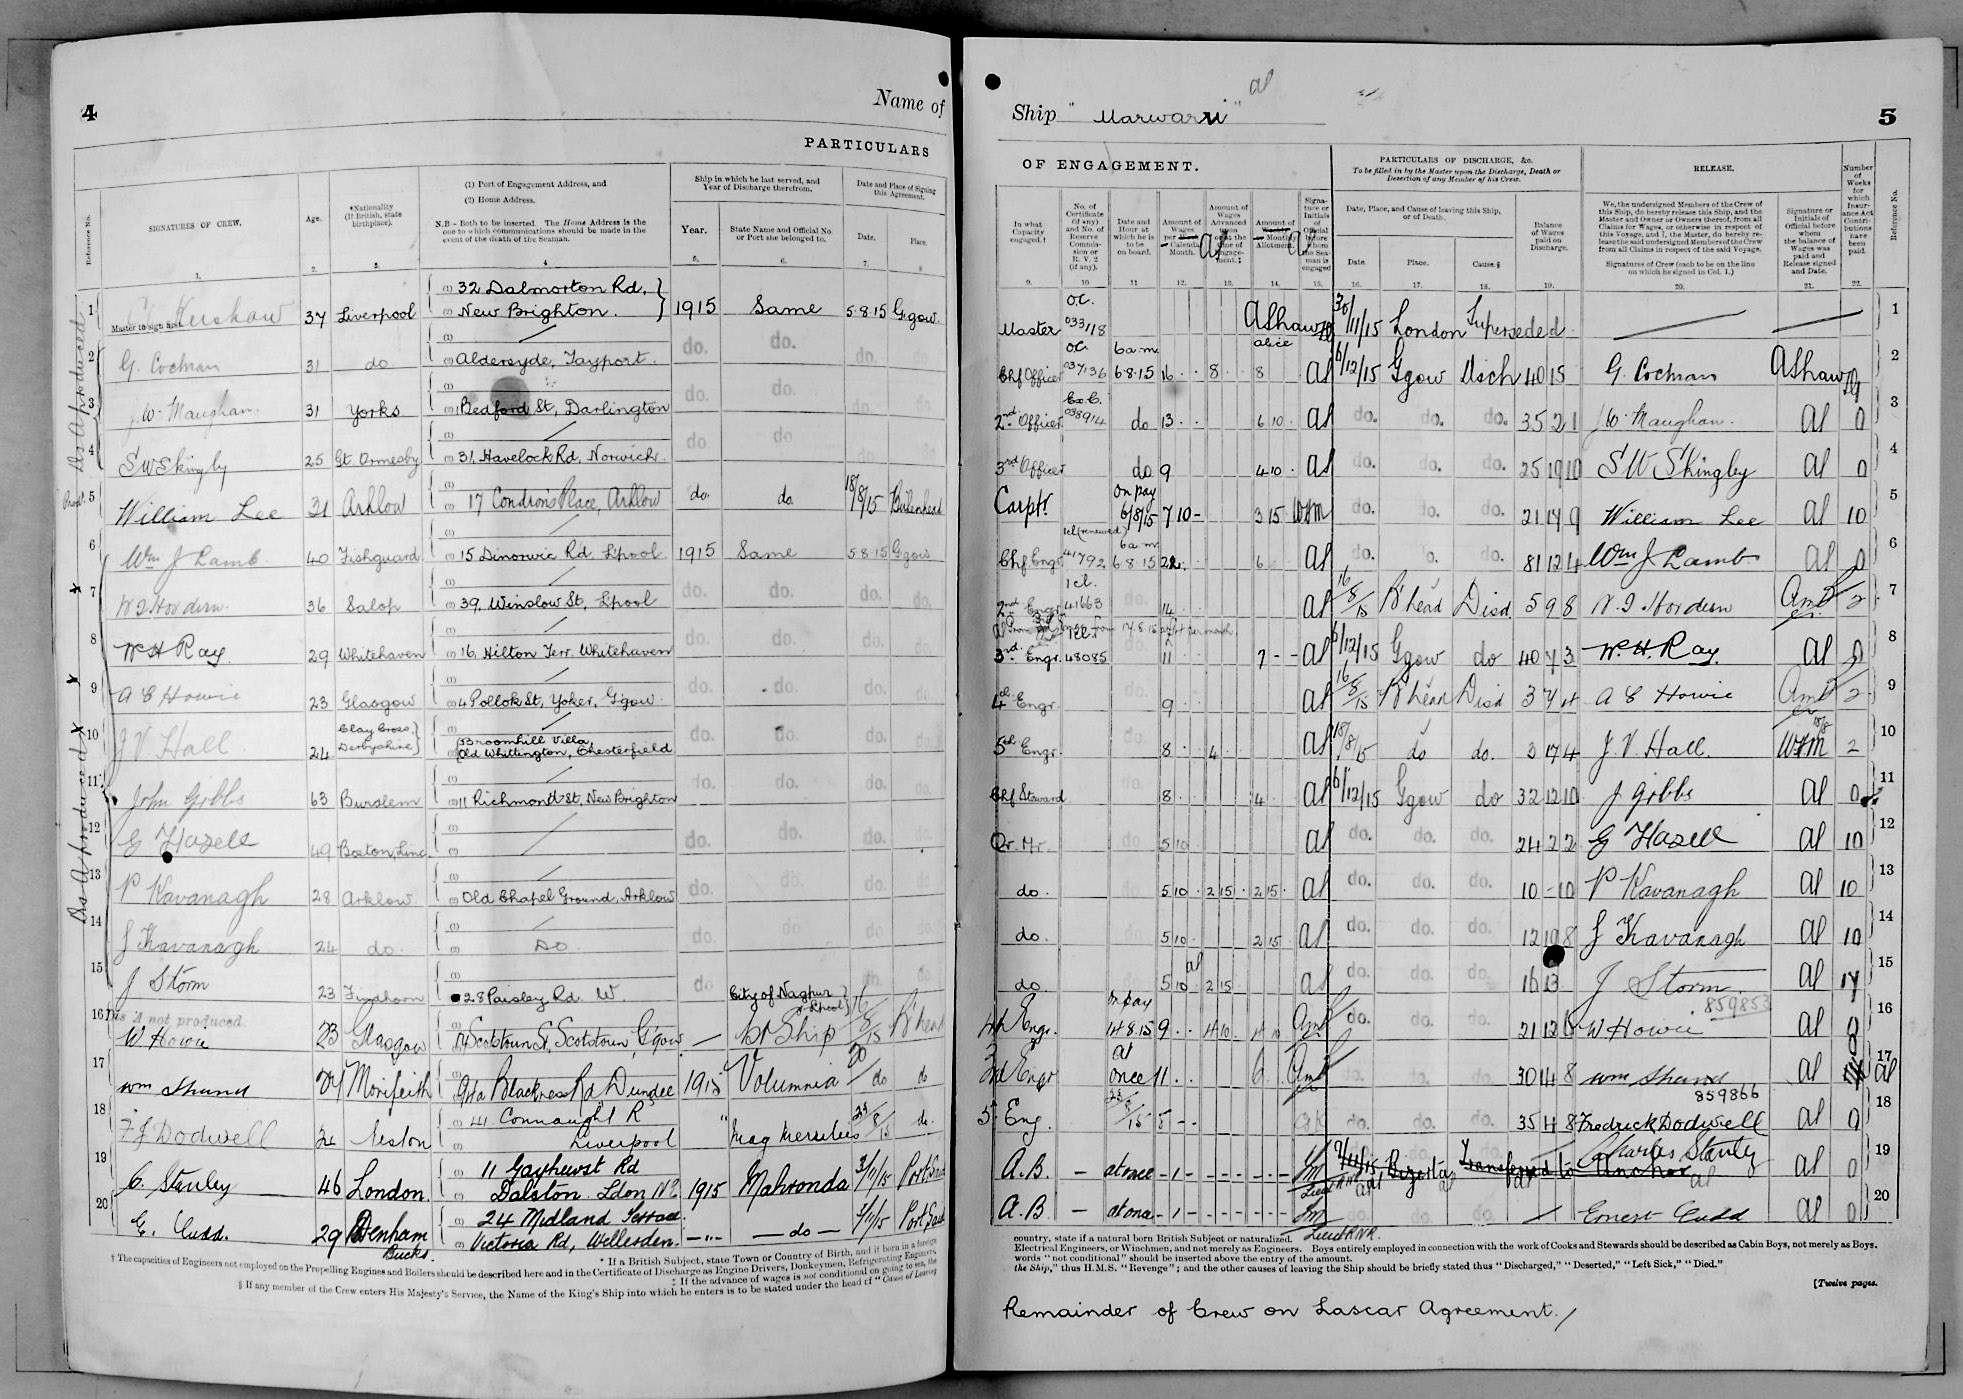 4
Name of
PARTICULARS
Reference No.
SIGNATURES OF CREW.
Age.
*Nationality (If British, state birthplace).
(1) Port of Engagement Address, and
(2) Home Address.
N.B - Both to be inserted. The Home Address is the one to which communications should be made in the event of the death of the Seaman.
Ship in which he last served, and Year of Discharge therefrom.
Year.
State Name and Official No. or Port she belonged to.
Date and Place of Signing this Agreement.
Date.
Place.
1. 2. 3. 4. 5. 6. 7. 8
Master to sign first.
1 Kershaw 37 Liverpool 32 Dalmorton Rd, New Brighton. 1915 Same 5.8.15 Ggow.
2 G. Cochran 31 do. Aldersyde, Tayport. do. do. do.
3 J W. Maughan. 31 Yorks Bedford St, Darlington do. do. do.
4 S W Skingly 25 Gt. Ormesby 31, Havelock Rd, Norwich. do. do. do.
5 William Lee 31 Arklow 17 Condron's Place, Arklow do do 18/8/15 Birkenhead
6 Wm J Lamb. 40 Fishguard 15 Dinorwic Rd Lpool 1915 Same 5.8.15 Ggow
7 36 Salop 39, Winslow St, Lpool do. do. do. do.
8 W H Ray. 29 Whitehaven 16, Hilton Terr. Whitehaven do. do. do. do.
9 A C Howie 23 Glasgow 4 Pollok St, Yoker, G'gow. do. do. do. do.
10 J. V Hall 24 Clay Cross, Derbyshire Broomhill Villa, Old Whittington, Chesterfield do. do. do. do.
11 John Gibbs 63 Burslem 11 Richmond St, New Brighton do. do. do. do.
12 G Hazell 49 Boston, Linc. do. do. do. do.
13 P Kavanagh 28 Arklow. Old Chapel Ground, Arklow do. do. do. do.
14 J Kavanagh 24 do. Do. do. do. do. do.
15 J Storm 23 Findhorn 28 Paisley Rd. W. do City of Nagpur Lpool do.
Dis A not produced
16 W Howie 23 Glasgow Scotstoun St, Scotstoun, G'gow — 1st Ship 16/8/15 B'head
17 Wm Shand 94a Blackness Rd Dundee 1915 Volumnia 20/ do do
18 F J Dodwell 24 Neston 41 Connaught R Liverpool " 23/8/15 do.
19 C. Stanley 46 London. 11 Gayhurst Rd Dalston. Ldon N.E. 1915 Mahronda 3/11/15 Port Said
20 E. Cudd. 29 Denham Bucks 24 Midland Terrace Victoria Rd, Willesden. —"— — do — Port Said
* If a British Subject, state Town or Country of Birth, and if born in a foreign
† The capacities of Engineers not employed on the Propelling Engines and Boilers should be described here and in the Certificate of Discharge as Engine Drivers, Donkeymen, Refrigerating Engineers,
‡ If the advance of wages is not conditional on going to sea, the
§ If any member of the Crew enters His Majesty's Service, the Name of the King's Ship into which he enters is to be stated under the head of "Cause of Leaving
Dis A produced
Dis A produced
Ship "Marwarri"
5
OF ENGAGEMENT.
PARTICULARS OF DISCHARGE, &c.
To be filled in by the Master upon the Discharge, Death or Desertion of any Member of his Crew.
RELEASE.
Number of Weeks for which Insurance Act Contributions have been paid.
Reference No.
In what Capacity engaged.†
No. of Certificate (if any) and No. of Reserve Commission or R.V. 2 (if any).
Date and Hour at which he is to be on board.
Amount of Wages per Calendar Month.
Amount of Wages Advanced upon or at the time of Engagement.‡
Amount of Monthly Allotment.
Signature or Initials of Official before whom the Seaman is engaged
Date, Place, and Cause of leaving this Ship, or of Death.
Date. Place. Cause.§
Balance of Wages paid on Discharge.
We, the undersigned Members of the Crew of this Ship, do hereby release this Ship, and the Master and Owner or Owners thereof, from all Claims for Wages, or otherwise in respect of this Voyage, and I, the Master, do hereby release the said undersigned Members of the Crew from all Claims in respect of the said Voyage.
Signatures of Crew (each to be on the line on which he signed in Col. 1.)
Signature or Initials of Official before whom the balance of Wages was paid and Release signed and Date.
9. 10 11 12. 13. 14. 15. 16. 17. 18. 19. 20. 21. 22.
Master O.C. 033118 AShaw 30/11/15 London Superseded 1
Chf Officer O.C. 037136 6 a.m. 6.8.15 16 8 8 al 6/12/15 Ggow Disch 40 15 G. Cochran AShaw 2
2nd Officer 038914 do 13 6 10 al do. do. do. 35 2 1 J W. Maughan. al 0 3
3rd Officer do 9 4 10 al do. do. do. 25 19 10 S W Skingly al 0 4
Carptr. On pay 6/8/15 7 10 - 3 15 do. do. do. William Lee al 10 5
Chf Engr 1cl (renewed) 41792 6 a.m. 6.8.15 22 6 al do. do. 81 12 4 Wm J Lamb al 0 6
2nd Engr 1 cl. 41663 do. 14 al 16/8/15 B'head Disd 5 9 8 2 7
3rd Engr. 48085 do. 11 7 - - al 6/12/15 Ggow do 40 7 3 W. H. Ray. al 0 8
4th Engr do. 9 al 16/8/15 B'head Disd 3 7 A C Howie 2 9
5th Engr. 8 4 al 18/8/15 do do. 3 17 4 J. V. Hall. 2 10
Chf Steward 8 4 al 6/12/15 Ggow do 32 12 10 J Gibbs al 0 11
Qr. Mr. do 5 10 al do. do. do. 24 2 2 G Hazell al 10 12
do. do 5 10 2 15 2 15 al do. do. do. 10 - 10 P Kavanagh al 10 13
do. 5 10 2 15 al do. do. do. 12 19 8 J Kavanagh al 10 14
do 5 10 2 15 al do. do. do. J Storm al 15
859853
4th Engr. On pay 14.8.15 9 4 10 4 10 do. do. do. W Howie al 0 16
Engr at once 11 6 do. do. do. 30 14 8 Wm Shand al 17
859866
5 Eng. 23/8/15 8 - - do. do. do. 35 4 8 Fredrick Dodwell al 0 18
A.B. - at once - 1 - Bizerta Transferred to Anchor Charles Stanley al 0 19
A.B. - at once - 1 - Lieut RNR. Ernest Cudd al 0 20
country, state if a natural born British Subject or naturalized.
Electrical Engineers, or Winchmen, and not merely as Engineers. Boys entirely employed in connection with the work of Cooks and Stewards should be described as Cabin Boys, not merely as Boys.
words "not conditional" should be inserted above the entry of the amount.
the Ship," thus H.M.S. "Revenge"; and the other causes of leaving the Ship should be briefly stated thus "Discharged," "Deserted," "Left Sick," "Died."
[Twelve pages.
Remainder of Crew on Lascar Agreement.